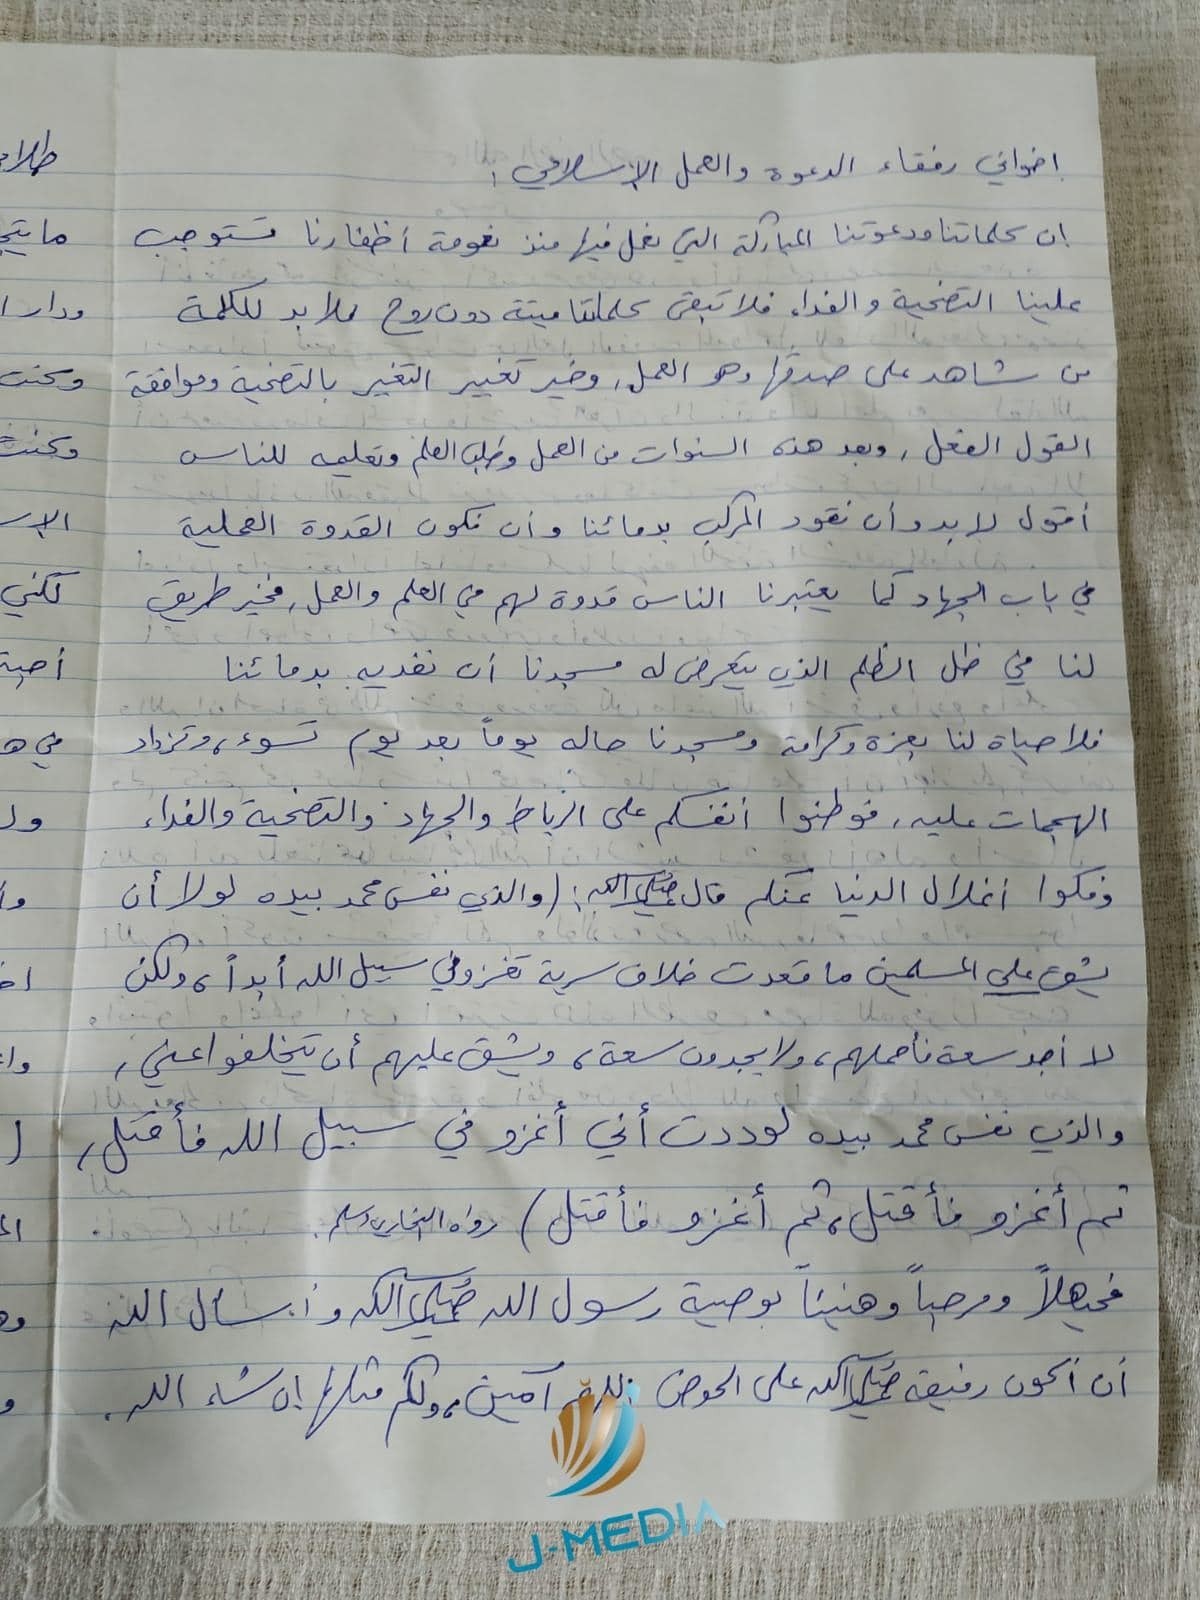 إخواني رفقاء الدعوة والعمل الإسلامي :
إن كلماتنا ودعوتنا المباركة التي نعمل فيها منذ نعومة أظفارنا تستوجب
علينا التضحية والفداء فلا تبقى كلماتنا ميتة دون روح فلا بد للكلمة
من شاهد على صدقها وهو العمل، وخير تغيير التغيير بالتضحية وموافقة
القول الفعل، وبعد هذه السنوات من العمل وطلب العلم وتعليمه للناس
أقول لا بد وأن نقود المركب بدمائنا وأن نكون القدوة العملية
في باب الجهاد كما يعتبرنا الناس قدوة لهم في العلم والعمل، فخير طريق
لنا في ظل الظلم الذي يتعرض له مسجدنا أن نفديه بدمائنا
فلا حياة لنا بعزة وكرامة ومسجدنا حاله يوماً بعد يوم تسوء، وتزداد
الهجمات عليه، فوطنوا أنفسكم على الرباط والجهاد والتضحية والفداء
وفكوا أغلال الدنيا عنكم قال ﷺ: (والذي نفس محمد بيده لولا أن
يشق على المسلمين ما قعدت خلاف سرية تغزو في سبيل الله أبداً، ولكن
لا أجد سعة فأحملهم، ولا يجدون سعة، ويشق عليهم أن يتخلفوا عني،
والذي نفس محمد بيده لوددت أني أغزو في سبيل الله فأقتل،
ثم أغزو فأقتل، ثم أغزو فأقتل) رواه البخاري ومسلم.
فحيهلاً ومرحباً وهنيئاً بوصية رسول الله ﷺ وأسأل الله
أن أكون رفيقه ﷺ على الحوض اللهم آمين، ولكم مثلها إن شاء الله.
J-MEDIA